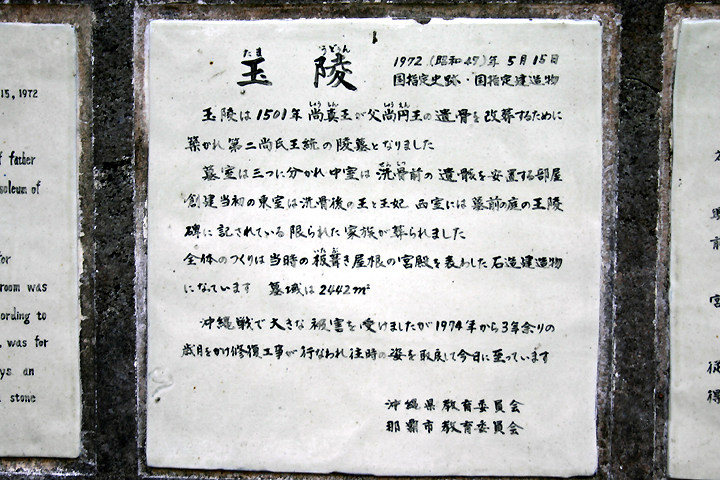 15, 1972
f father
soleum of
for
room was
ording to
, was for
ys an
stone
たま うどぅん
玉陵
1972 (昭和47)年 5月15日
国指定史跡・国指定建造物
しょう しん しょう えん
玉陵は1501年 尚真王が父尚円王の遺骨を改葬するために
築かれ第二尚氏王統の陵墓となりました
せんこつ
墓室は三つに分かれ中室は洗骨前の遺骸を安置する部屋
創建当初の東室は洗骨後の王と王妃 西室には墓前の庭の玉陵
碑に記されている限られた家族が葬られました
いたぶ
全体のつくりは当時の板葺き屋根の宮殿を表わした石造建造物
になっています 墓域は2442m²
沖縄戦で大きな被害を受けましたが1974年から3年余りの
歳月をかけ修復工事が行なわれ往時の姿を取戻して今日に至っています
沖縄県教育委員会
那覇市教育委員会
前
宮
従
得